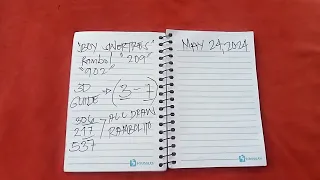 "BOY WORTRAS"
Rambol "209"
"902"
3D
GUIDE → (3-7)
306 → ALL DRAW
217 / RAMBOLITO
537
MAY 24 2024